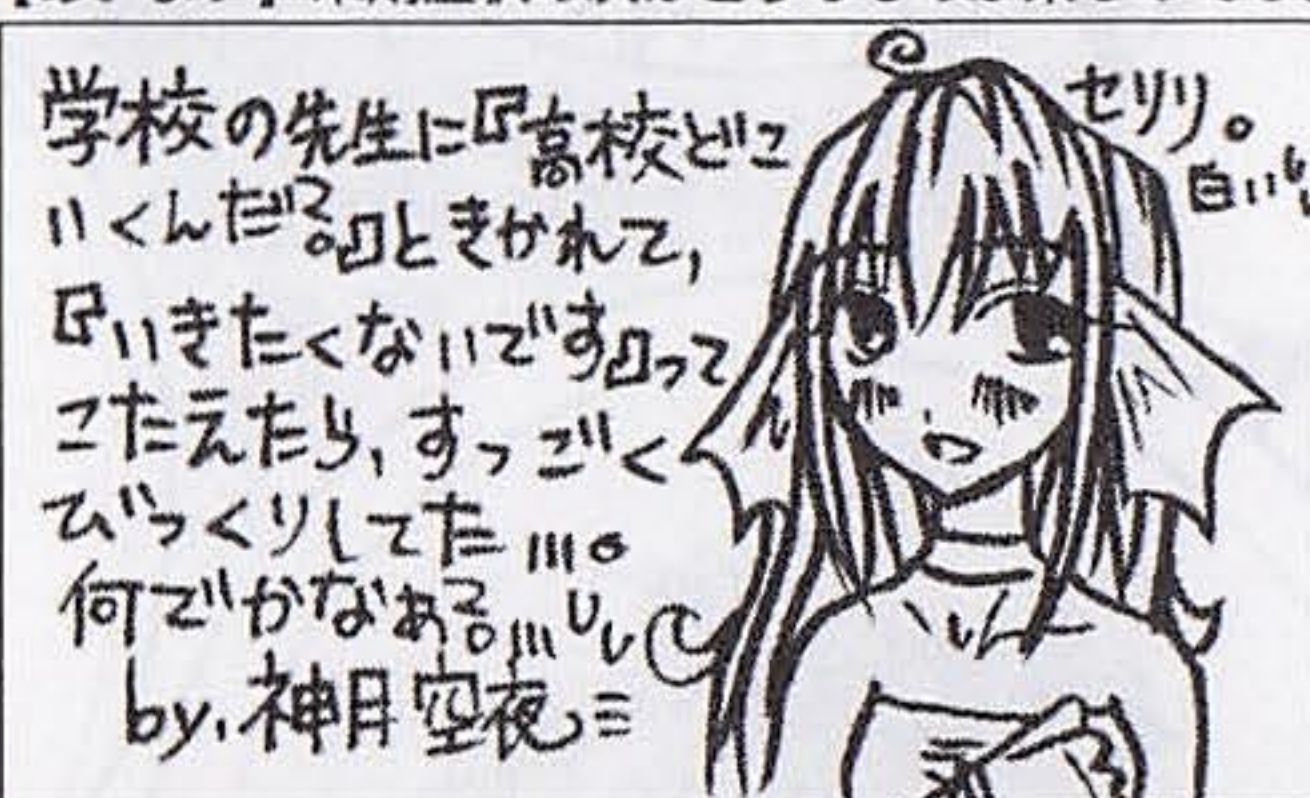 学校の先生に『高校どこ
いくんだ?。』ときかれて,
『いきたくないです』って
こたえたら,すっごく
びっくりしてた…。
何でかなぁ?。…
by.神月空夜
セリリ。
白い